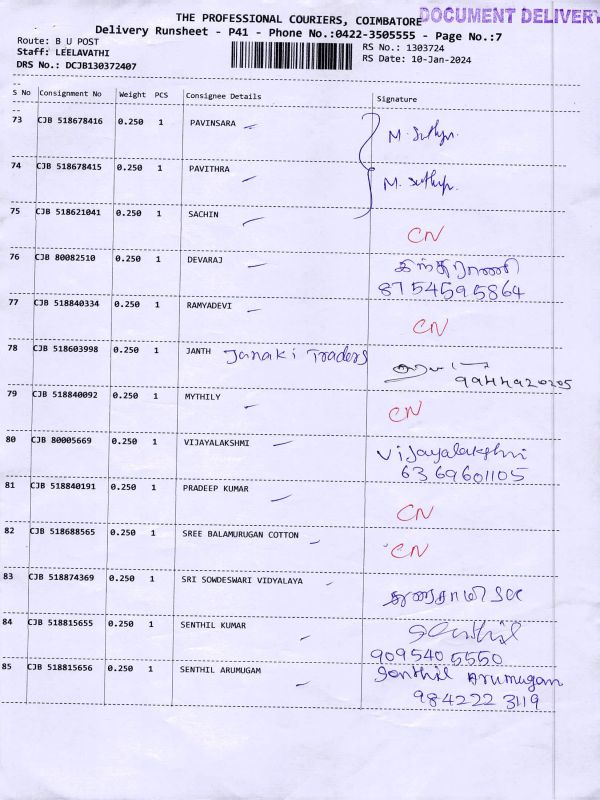 THE PROFESSIONAL COURIERS, COIMBATORE DOCUMENT DELIVERY
Delivery Runsheet - P41 - Phone No.:0422-3505555 - Page No.:7
Route: B U POST
RS No.: 1303724
Staff: LEELAVATHI
RS Date: 10-Jan-2024
DRS No.: DCJB130372407
S No Consignment No Weight PCS Consignee Details Signature
73 CJB 518678416 0.250 1 PAVINSARA
74 CJB 518678415 0.250 1 PAVITHRA
75 CJB 518621041 0.250 1 SACHIN CN
76 CJB 80082510 0.250 1 DEVARAJ
8754595864
77 CJB 518840334 0.250 1 RAMYADEVI CN
78 CJB 518603998 0.250 1 JANTH Janaki Traders
9944920205
79 CJB 518840092 0.250 1 MYTHILY CN
80 CJB 80005669 0.250 1 VIJAYALAKSHMI Vijayalakshmi
6369601105
81 CJB 518840191 0.250 1 PRADEEP KUMAR CN
82 CJB 518688565 0.250 1 SREE BALAMURUGAN COTTON CN
83 CJB 518874369 0.250 1 SRI SOWDESWARI VIDYALAYA
84 CJB 518815655 0.250 1 SENTHIL KUMAR Senthil
909540 5550
85 CJB 518815656 0.250 1 SENTHIL ARUMUGAM Senthil Arumugam
984222 3119